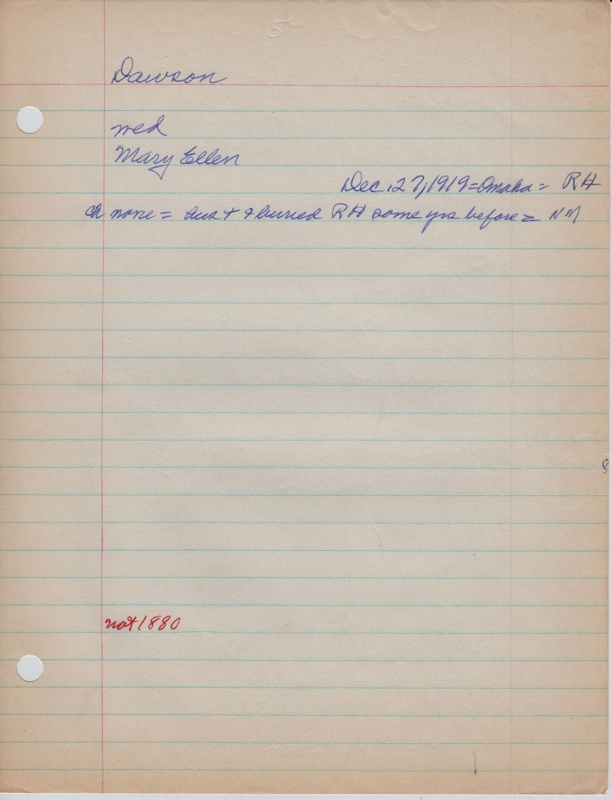 Dawson
wed
Mary Ellen
Dec. 27, 1919 = Omaha = RH
ch none = & buried RH some yrs before = NM
not 1880